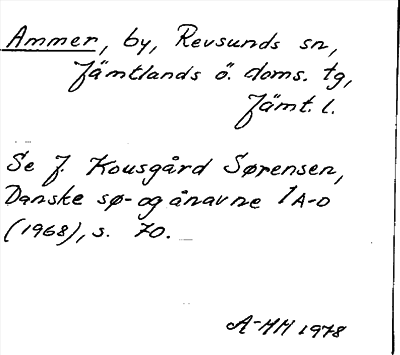 Ammer, by, Revsunds sn,
Jämtlands ö. doms. tg,
Jämt. l.
Se J. Kousgård Sørensen,
Danske sø- og ånavne 1 A-D
(1968), s. 70.
A-MH 1978